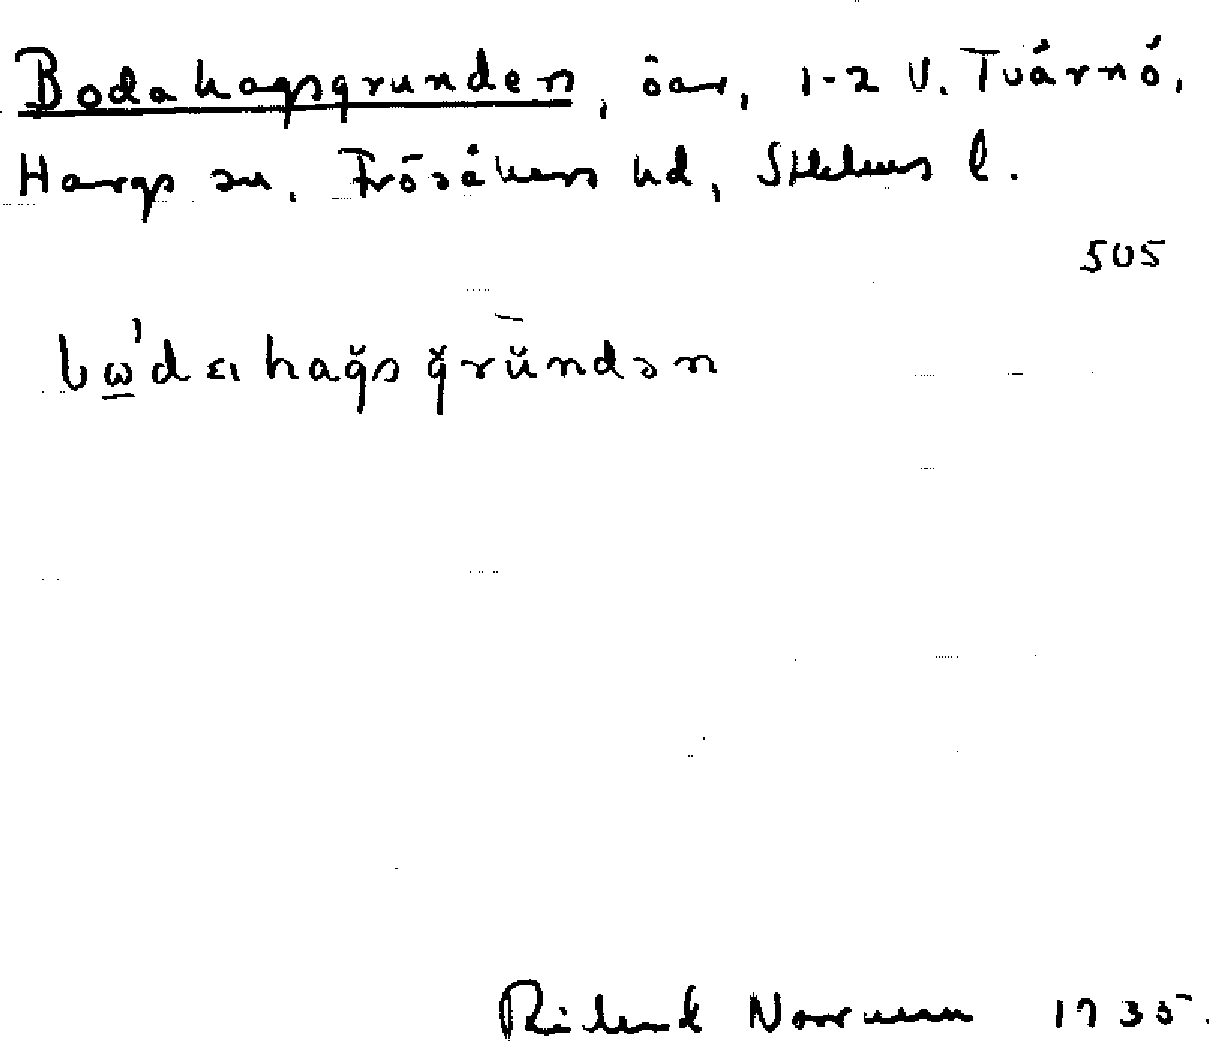 Bodahagsgrunden, öar, 1-2 V. Tvärnö,
Hargs sn. Frösåkers hd, Sthlms l.
505
bω̲'dαhaǧsǧrŭndən
Rikard Norrman 1935.